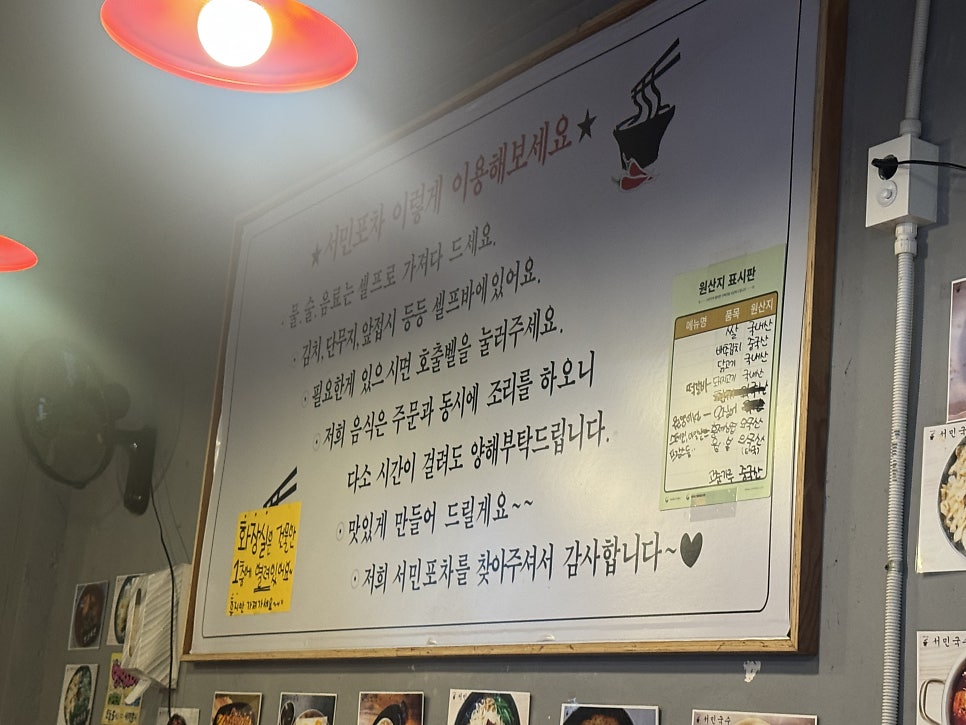 ★서민포차 이렇게 이용해보세요★
물.술.음료는 셀프로 가져다 드세요.
김치,단무지,앞접시 등등 셀프바에있어요.
필요한게 있으시면 호출벨을 눌러주세요.
저희 음식은 주문과 동시에 조리를 하오니
다소 시간이 걸려도 양해부탁드립니다.
맛있게 만들어 드릴게요~~
저희 서민포차를 찾아주셔서 감사합니다~♥
화장실은 건물안
1층에 열려있어요
휴지만 가져가세요~
원산지 표시판
메뉴명 품목 원산지
쌀 국내산
배추김치 중국산
닭고기 국내산
돼지고기 국내산
고춧가루 중국산
서민국수